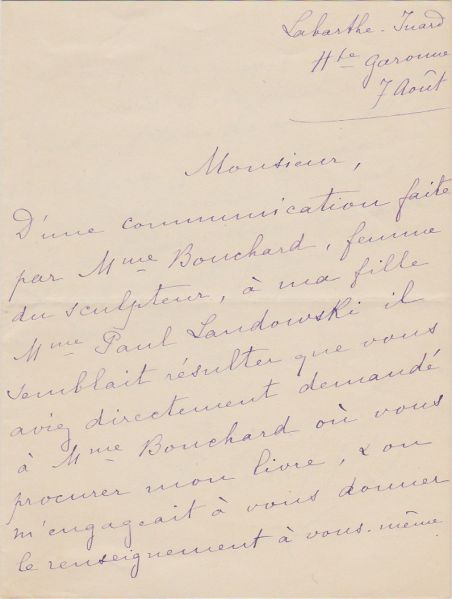 Labarthe-Inard
Hte Garonne
7 Août
Monsieur,
D'une communication faite
par Mme Bouchard, femme
du sculpteur, à ma fille
Mme Paul Landowski il
semblait résulter que vous
aviez directement demandé
à Mme Bouchard où vous
procurer mon livre, & on
m'engageait à vous donner
le renseignement à vous-même